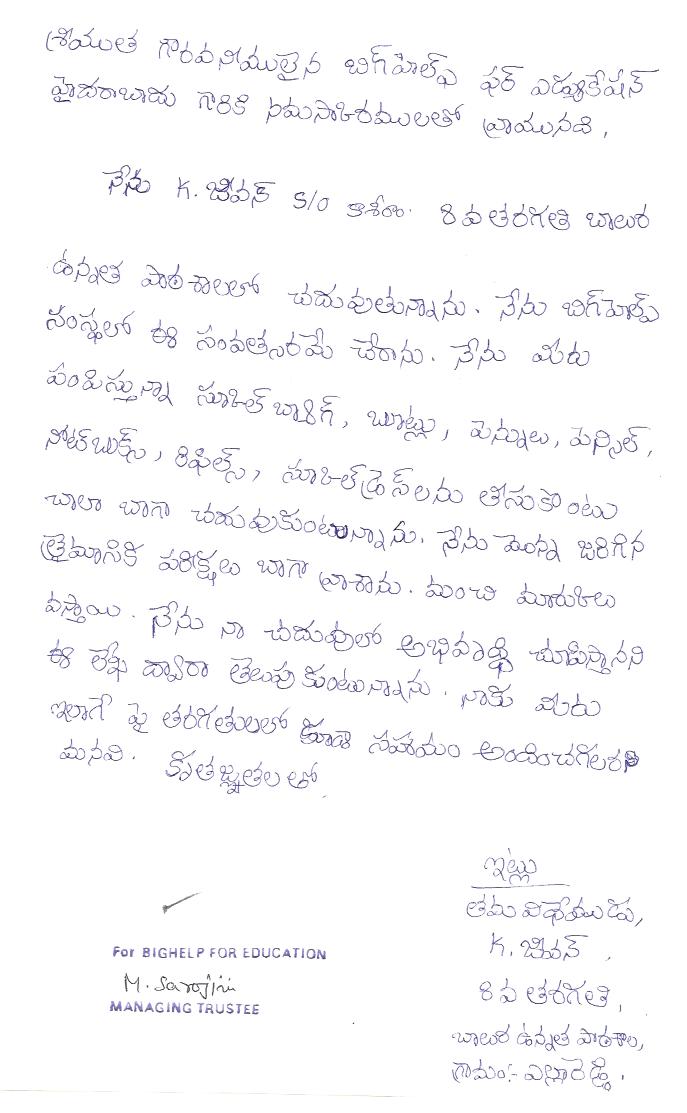 శ్రీయుత గౌరవనీయులైన బిగ్‌హెల్ప్ ఫర్ ఎడ్యుకేషన్
హైదరాబాదు గారికి నమస్కారములతో వ్రాయునది,
నేను K. జీవన్ S/O కాశీరాం. 8 వ తరగతి బాలుర
ఉన్నత పాఠశాలలో చదువుతున్నాను. నేను బిగ్‌హెల్ప్
సంస్థలో ఈ సంవత్సరమే చేరాను. నేను మీరు
పంపిస్తున్నా స్కూల్ బ్యాగ్, బూట్లు, పెన్నులు, పెన్సిల్,
నోట్‌బుక్స్, రిఫిల్స్, స్కూల్‌డ్రెస్‌లను తీసుకొంటు
చాలా బాగా చదువుకుంటున్నాను. నేను మొన్న జరిగిన
త్రైమాసిక పరీక్షలు బాగా వ్రాశాను. మంచి మార్కులు
వస్తాయి. నేను నా చదువులో అభివృద్ధి చూపిస్తానని
ఈ లేఖ ద్వారా తెలుపుకుంటున్నాను. నాకు మీరు
ఇలాగే పై తరగతులలో కూడా సహాయం అందించగలరని
మనవి. కృతజ్ఞతలతో
ఇట్లు
తమ విధేయుడు,
K. జీవన్,
8 వ తరగతి,
బాలుర ఉన్నత పాఠశాల,
గ్రామం:- ఎల్లారెడ్డి.
For BIGHELP FOR EDUCATION
M. Sarojini
MANAGING TRUSTEE